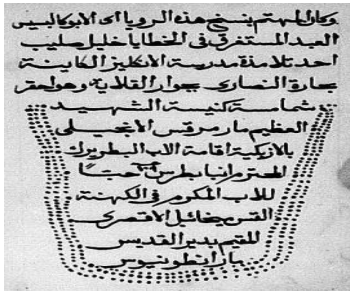 وكان المهتم بنسخ هذه الرويا اى الابوكالبسيس
العبد المستغرق فى الخطايا خليل صليب
احد تلامذة مدرسة الانكليز الكاينة
بحارة النصارى بجوار القلاية وهو احقر
شماسة كنيسة الشهيد
العظيم مار مرقس الانجيلى
بالازبكية اقامة الاب البطريرك
المحترم انبا بطرس
للاب المكرم فى الكهنة
القس ميخائيل الاقصرى
المقيم بدير القديس
مار انطونيوس